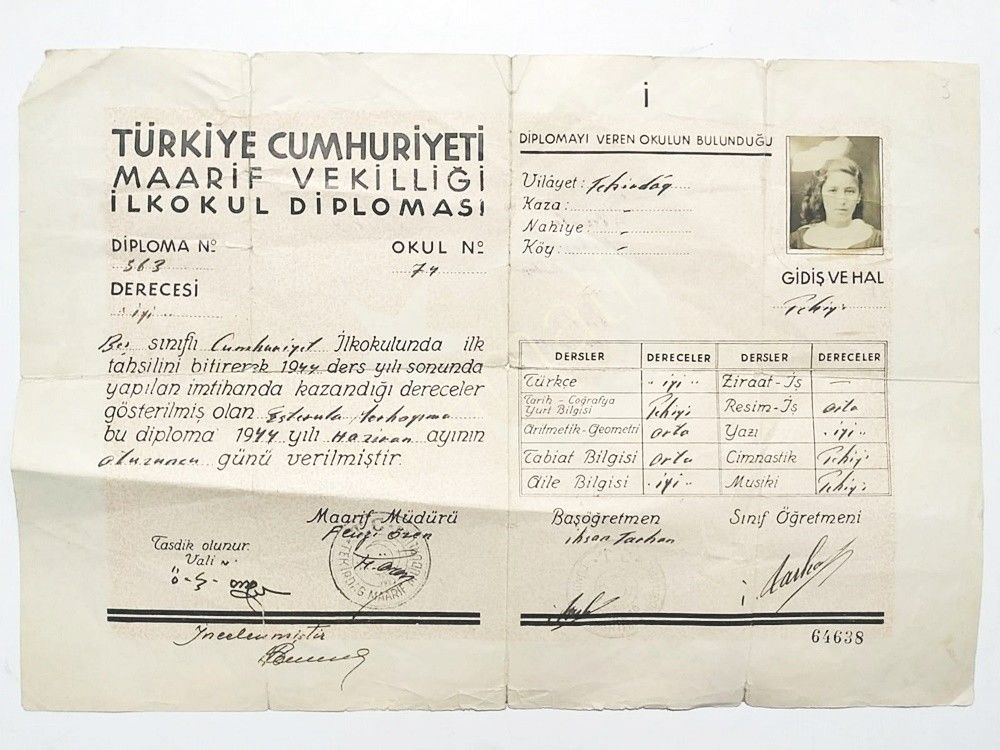 3
TÜRKİYE CUMHURİYETİ
MAARİF VEKİLLİĞİ
İLKOKUL DİPLOMASI
DİPLOMA Nº
563
OKUL Nº
74
DERECESİ
iyi
Beş sınıflı Cumhuriyet İlkokulunda ilk
tahsilini bitirerek 1944 ders yılı sonunda
yapılan imtihanda kazandığı dereceler
gösterilmiş olan
bu diploma 1944 yılı Haziran ayının
otuzuncu günü verilmiştir.
Maarif Müdürü
Fevzi Özen
Tasdik olunur.
Vali
İncelenmiştir
İ
DİPLOMAYI VEREN OKULUN BULUNDUĞU
Vilâyet: Tekirdağ
Kaza: -
Nahiye: -
Köy: -
GİDİŞ VE HAL
Pekiyi
DERSLER DERECELER DERSLER DERECELER
Türkçe iyi Ziraat-İş —
Tarih - Coğrafya Yurt Bilgisi Pekiyi Resim-İş orta
Aritmetik-Geometri orta Yazı iyi
Tabiat Bilgisi orta Cimnastik Pekiyi
Aile Bilgisi iyi Musiki Pekiyi
Başöğretmen
İhsan Tarhan
Sınıf Öğretmeni
64638